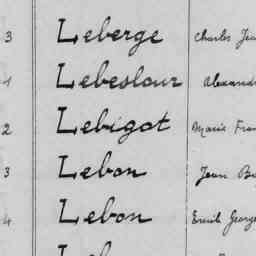 3 Leberge Charles Jea
1 Lebeslour Alexandr
2 Lebigot Marie Fran
3 Lebon Jean Ba
4 Lebon Emile George